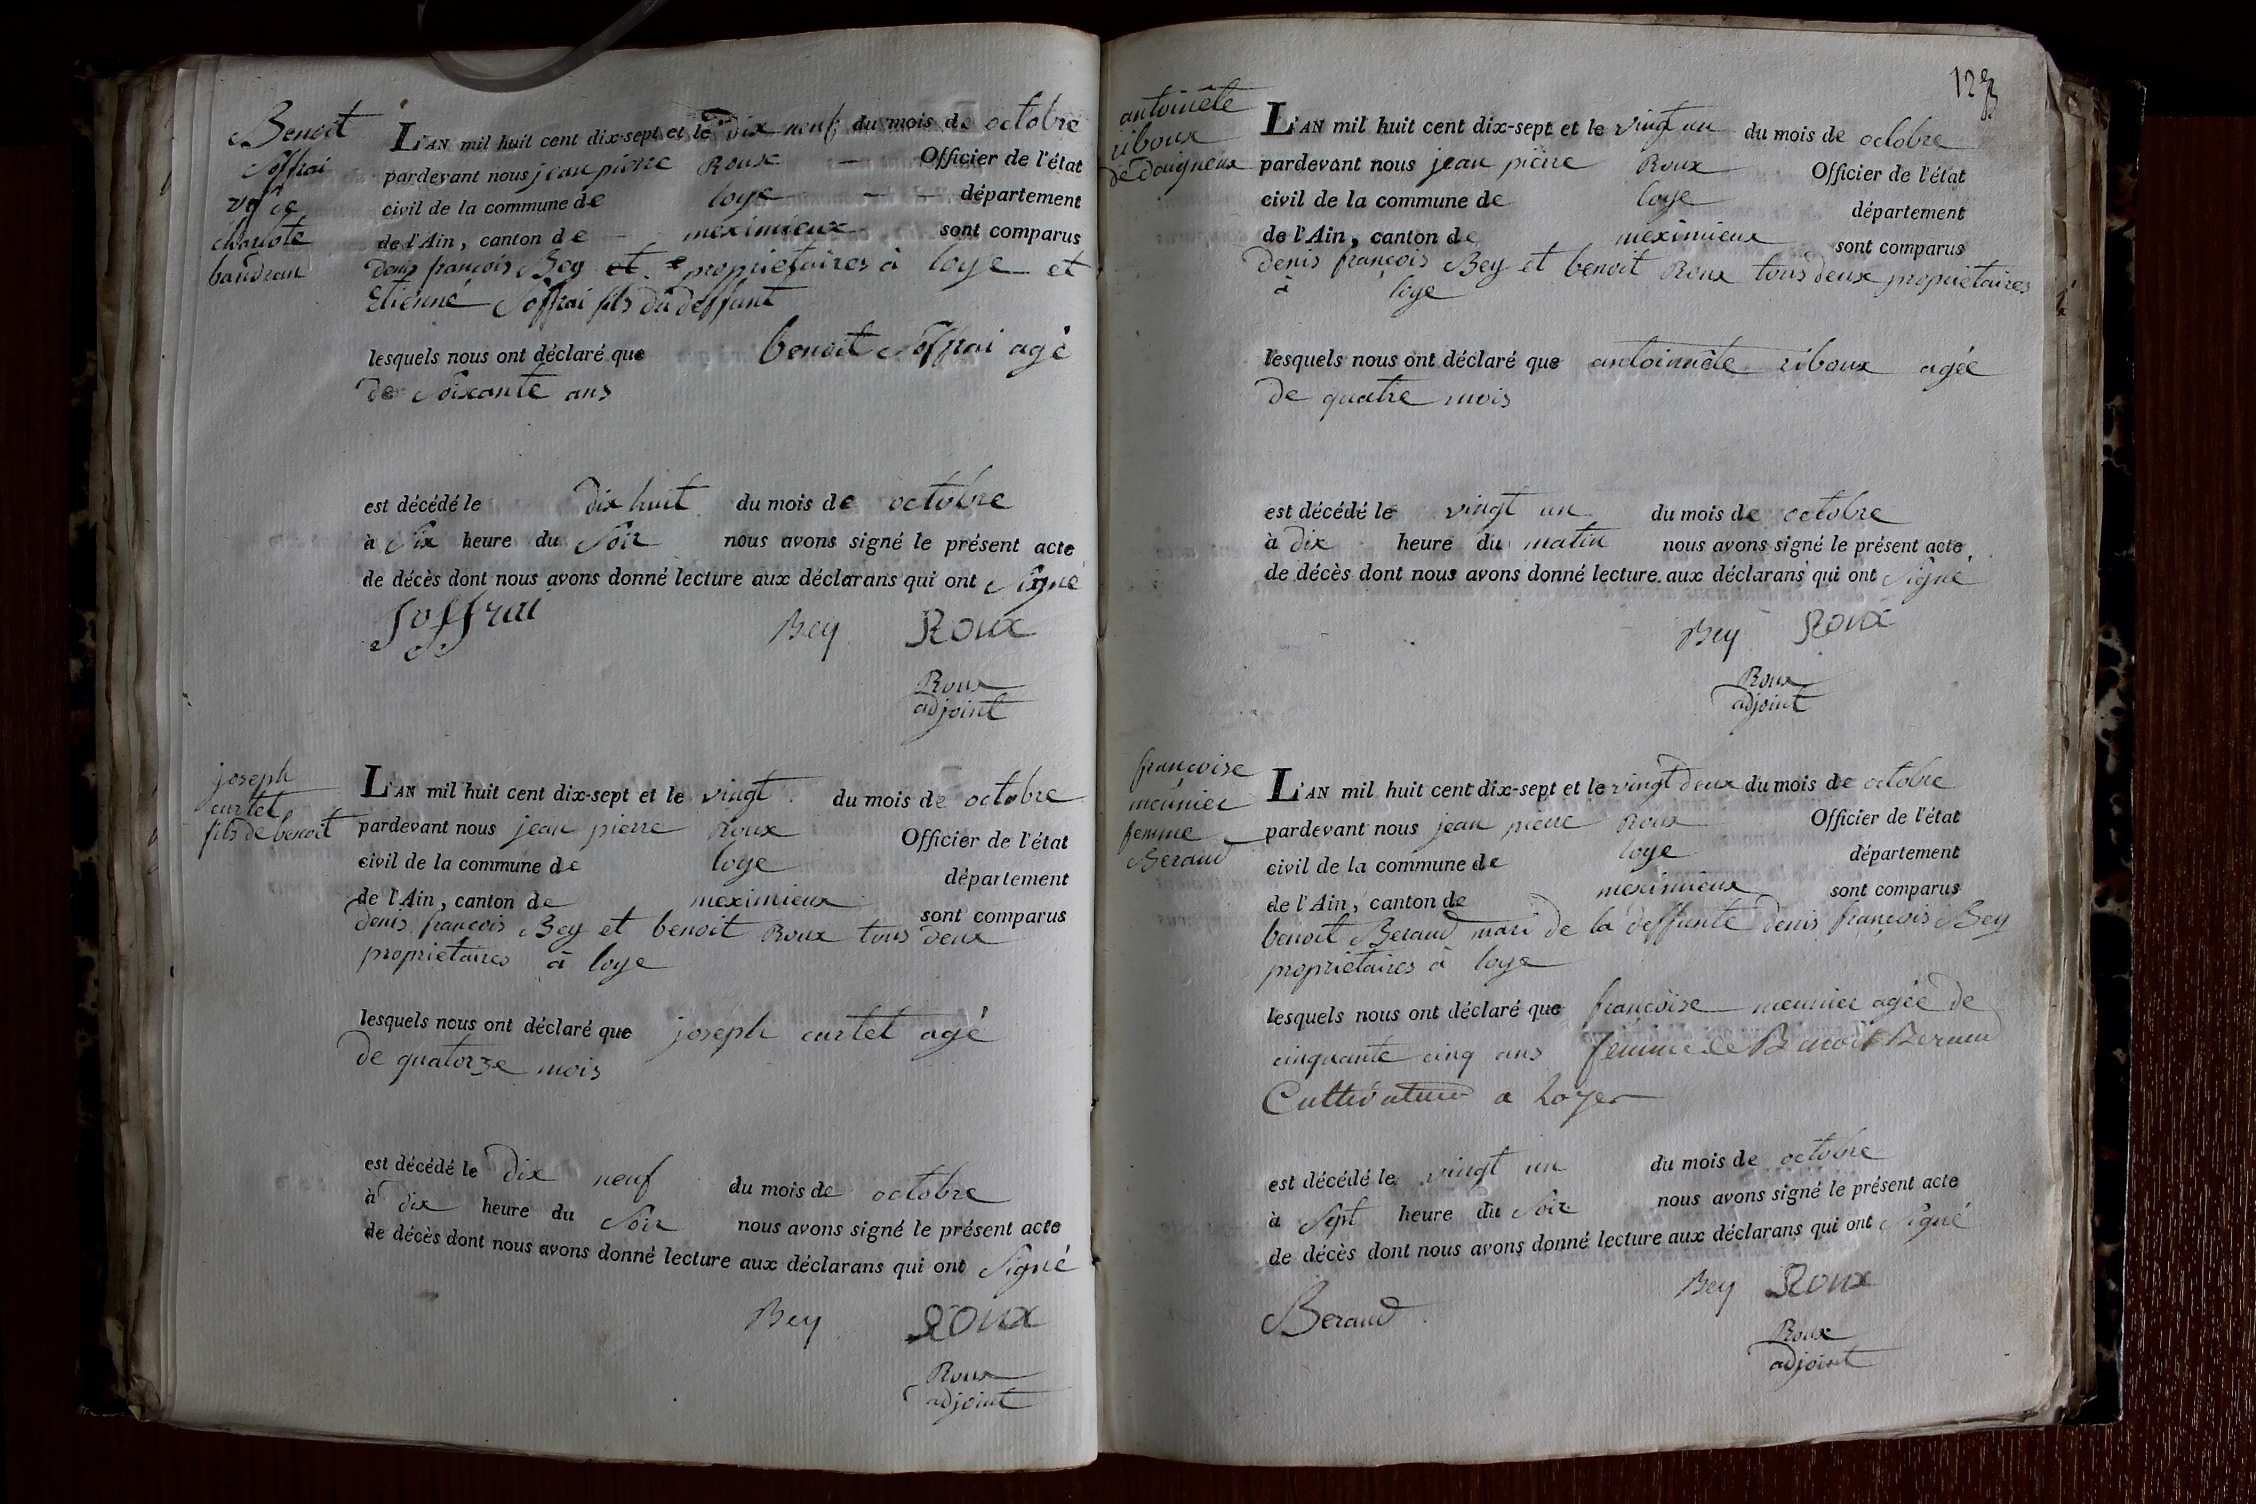 Benoit
Soffrai
vf de
charlote
baudran
L'AN mil huit cent dix-sept et le dix neuf du mois de octobre
pardevant nous jean pierre Roux Officier de l'état
civil de la commune de loye département
de l'Ain, canton de meximieux sont comparus
denis francois Bey et proprietaires à loye et
Etienne Soffrai fils du deffunt
lesquels nous ont déclaré que benoit Soffrai agé
de Soixante ans
est décédé le dix huit du mois de octobre
à Six heure du Soir nous avons signé le présent acte
de décès dont nous avons donné lecture aux déclarans qui ont Signé
Soffrai Bey Roux
Roux
adjoint
joseph
curtet
fils de benoit
L'AN mil huit cent dix-sept et le vingt du mois de octobre
pardevant nous jean pierre Roux Officier de l'état
civil de la commune de loye département
de l'Ain, canton de meximieux sont comparus
denis francois Bey et benoit Roux tous deux
proprietaires à loye
lesquels nous ont déclaré que joseph curtet agé
de quatorze mois
est décédé le dix neuf du mois de octobre
à dix heure du Soir nous avons signé le présent acte
de décès dont nous avons donné lecture aux déclarans qui ont Signé
Bey Roux
Roux
adjoint
123
antoinete
riboux
de
L'AN mil huit cent dix-sept et le vingt un du mois de octobre
pardevant nous jean pierre Roux Officier de l'état
civil de la commune de loye département
de l'Ain, canton de meximieux sont comparus
denis françois Bey et benoit Roux tous deux proprietaires
à loye
lesquels nous ont déclaré que antoinnete riboux agée
de quatre mois
est décédé le vingt un du mois de octobre
à dix heure du matin nous avons signé le présent acte
de décès dont nous avons donné lecture aux déclarans qui ont Signé
Bey Roux
Roux
adjoint
francoise
meunier
femme
Beraud
L'AN mil huit cent dix-sept et le vingt deux du mois de octobre
pardevant nous jean pierre Roux Officier de l'état
civil de la commune de loye département
de l'Ain, canton de meximieux sont comparus
benoit Beraud mari de la deffunte denis françois Bey
proprietaires à loye
lesquels nous ont déclaré que françoise meunier agée de
cinquante cinq ans femme de Benoit
Cultivateur a Loyes
est décédé le vingt un du mois de octobre
à Sept heure du Soir nous avons signé le présent acte
de décès dont nous avons donné lecture aux déclarans qui ont Signé
Bey Roux
Beraud
Roux
adjoint